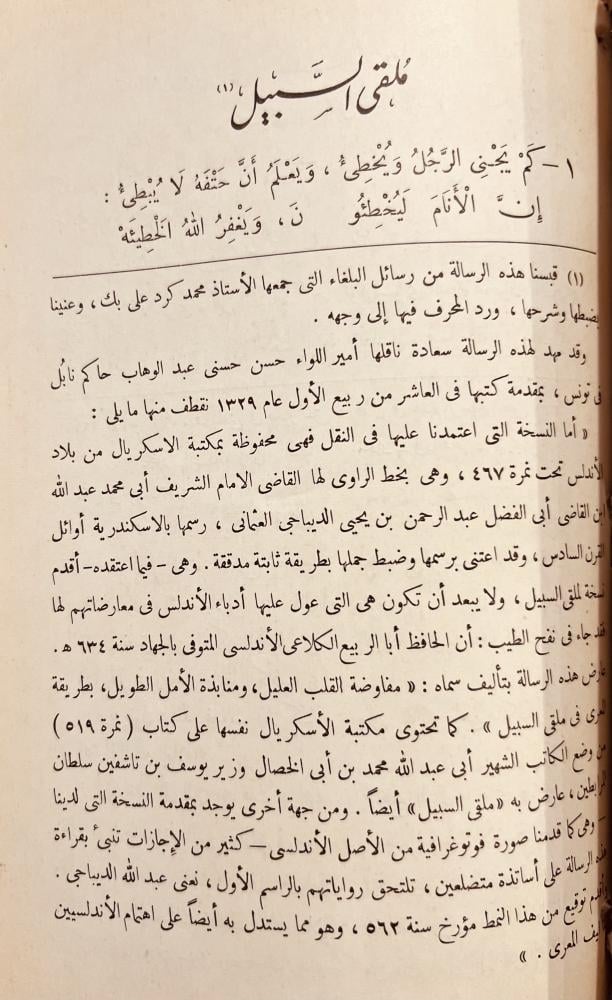 مُلقى السَّبيل (١)
١ – كَمْ يَجْنِى الرَّجُلُ وَيُخْطِئُ ، وَيَعْلَمُ أَنَّ حَتْفَهُ لَا يُبْطِئُ :
إِنَّ الْأَنَامَ لَيُخْطِئُو نَ ، وَيَغْفِرُ اللهُ الْخَطِيئَهْ
(١) قبسنا هذه الرسالة من رسائل البلغاء التى جمعها الأستاذ محمد كرد على بك ، وعنينا
بضبطها وشرحها ، ورد المحرف فيها إلى وجهه .
وقد مهد لهذه الرسالة سعادة ناقلها أمير اللواء حسن حسنى عبد الوهاب حاكم نابُل
فى تونس ، بمقدمة كتبها فى العاشر من ربيع الأول عام ١٣٢٩ نقطف منها ما يلى :
« أما النسخة التى اعتمدنا عليها فى النقل فهى محفوظة بمكتبة الاسكريال من بلاد
الأندلس تحت نمرة ٤٦٧ ، وهى بخط الراوى لها القاضى الامام الشريف أبى محمد عبد الله
ابن القاضى أبى الفضل عبد الرحمن بن يحيى الديباجى العثمانى ، رسمها بالاسكندرية أوائل
القرن السادس ، وقد اعتنى برسمها وضبط جملها بطريقة ثابتة مدققة . وهى – فيما اعتقده – أقدم
نسخة لملقى السبيل ، ولا يبعد أن تكون هى التى عول عليها أدباء الأندلس فى معارضاتهم لها
فقد جاء فى نفح الطيب : أن الحافظ أبا الربيع الكلاعى الأندلسى المتوفى بالجهاد سنة ٦٣٤ ه .
عارض هذه الرسالة بتأليف سماه : « مفاوضة القلب العليل ، ومنابذة الأمل الطويل ، بطريقة
المعرى فى ملقى السبيل » . كما تحتوى مكتبة الأسكريال نفسها على كتاب ( نمرة ٥١٩ )
من وضع الكاتب الشهير أبى عبد الله محمد بن أبى الخصال وزير يوسف بن تاشفين سلطان
المرابطين ، عارض به « ملقى السبيل » أيضاً . ومن جهة أخرى يوجد بمقدمة النسخة التى لدينا
– وهى كما قدمنا صورة فوتوغرافية من الأصل الأندلسى – كثير من الإجازات تنبىء بقراءة
هذه الرسالة على أساتذة متضلعين ، تلتحق رواياتهم بالراسم الأول ، نعنى عبد الله الديباجى .
توقيع من هذا النمط مؤرخ سنة ٥٦٢ ، وهو مما يستدل به أيضاً على اهتمام الأندلسيين
المعرى . »